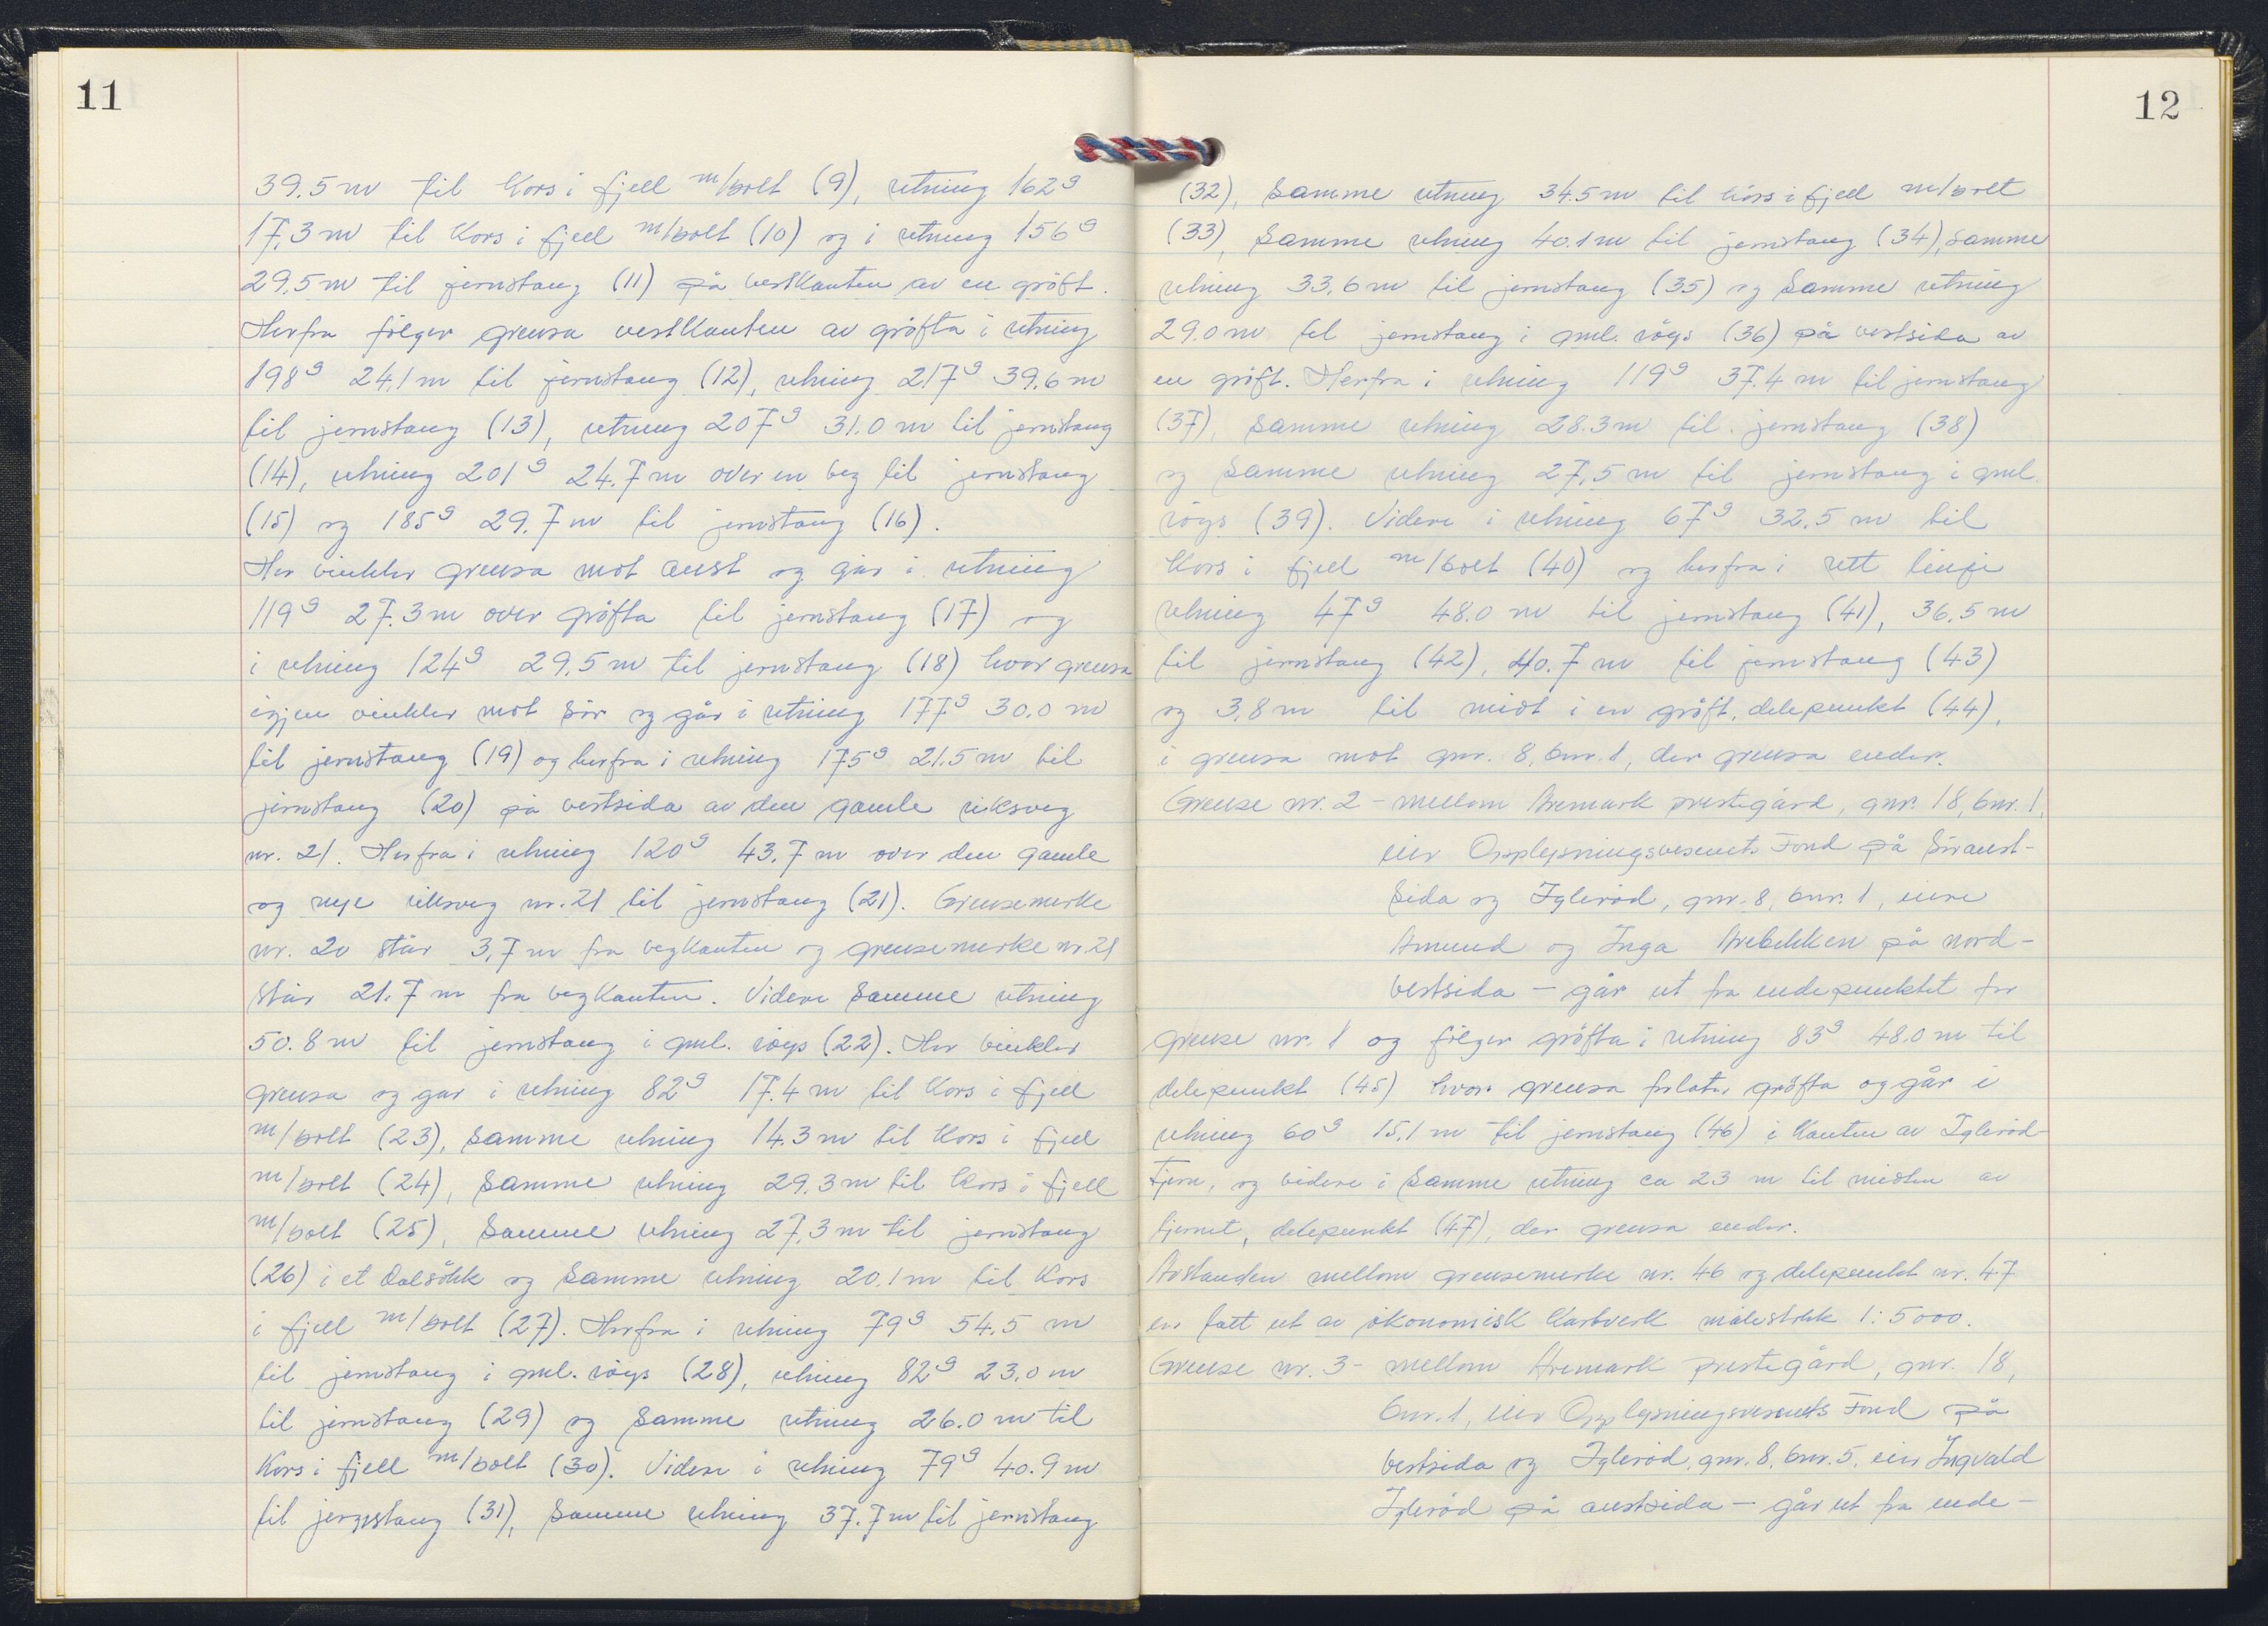 11
39.5 m til kors i fjell m/bolt (9), retning 162g
17,3 m til kors i fjell m/bolt (10) og i retning 156g
29.5 m til jernstang (11) på vestkanten av en grøft.
Herfra følger grensa vestkanten av grøfta i retning
198g 24.1 m til jernstang (12), retning 217g 39.6 m
til jernstang (13), retning 207g 31.0 m til jernstang
(14), retning 201g 24.7 m over en veg til jernstang
(15) og 185g 29.7 m til jernstang (16).
Her vinkler grensa mot aust og går i retning
119g 27.3 m over grøfta til jernstang (17) og
i retning 124g 29.5 m til jernstang (18) hvor grensa
igjen vinkler mot sør og går i retning 177g 30.0 m
til jernstang (19) og herfra i retning 175g 21.5 m til
jernstang (20) på vestsida av den gamle riksveg
nr. 21. Herfra i retning 120g 43.7 m over den gamle
og nye riksveg nr. 21 til jernstang (21). Grensemerke
nr. 20 står 3,7 m fra vegkanten og grensemerke nr. 21
står 21.7 m fra vegkanten. Videre samme retning
50.8 m til jernstang i gml. røys (22). Her vinkler
grensa og går i retning 82g 17.4 m til kors i fjell
m/bolt (23), samme retning 14.3 m til kors i fjell
m/bolt (24), samme retning 29.3 m til kors i fjell
m/bolt (25), samme retning 27,3 m til jernstang
(26) i et dalsøkk og samme retning 20.1 m til kors
i fjell m/bolt (27). Herfra i retning 79g 54.5 m
til jernstang i gml. røys (28), retning 82g 23.0 m
til jernstang (29) og samme retning 26.0 m til
kors i fjell m/bolt (30). Videre i retning 79g 40.9 m
til jernstang (31), samme retning 37.7 m til jernstang
12
(32), samme retning 34.5 m til kors i fjell m/bolt
(33), samme retning 40.1 m til jernstang (34), samme
retning 33.6 m til jernstang (35) og samme retning
29.0 m til jernstang i gml. røys (36) på vestsida av
en grøft. Herfra i retning 119g 37.4 m til jernstang
(37), samme retning 28.3 m til jernstang (38)
og samme retning 27,5 m til jernstang i gml.
røys (39). Videre i retning 67g 32.5 m til
kors i fjell m/bolt (40) og herfra i rett linje
retning 47g 48.0 m til jernstang (41), 36.5 m
til jernstang (42), 40.7 m til jernstang (43)
og 3.8 m til midt i en grøft, delepunkt (44),
i grensa mot gnr. 8, bnr. 1, der grensa ender.
Grense nr. 2 - mellom Aremark prestegård, gnr. 18, bnr. 1,
eier Opplysningsvesenets Fond på søraust-
sida og Iglerød, gnr. 8, bnr. 1, eiere
Amund og Inga Arebekken på nord-
vestsida - går ut fra endepunktet for
grense nr. 1 og følger grøfta i retning 83g 48.0 m til
delepunkt (45) hvor grensa forlater grøfta og går i
retning 60g 15.1 m til jernstang (46) i kanten av Iglerød-
tjern, og videre i samme retning ca 23 m til midten av
tjernet, delepunkt (47), der grensa ender.
Avstanden mellom grensemerke nr. 46 og delepunkt nr. 47
er tatt ut av økonomisk kartverk målestokk 1:5000.
Grense nr. 3 - mellom Aremark prestegård, gnr. 18,
bnr. 1, eier Opplysningsvesenets Fond på
vestsida og Iglerød, gnr. 8, bnr. 5, eier Ingvald
Iglerød på austsida - går ut fra ende-